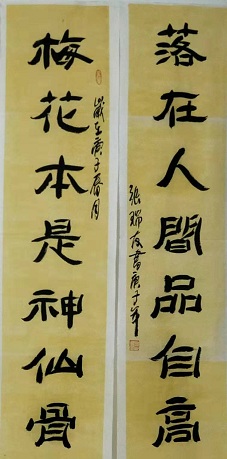 落在人間品自高
張瑞友書庚子年
梅花本是神仙骨
歲在庚子春月